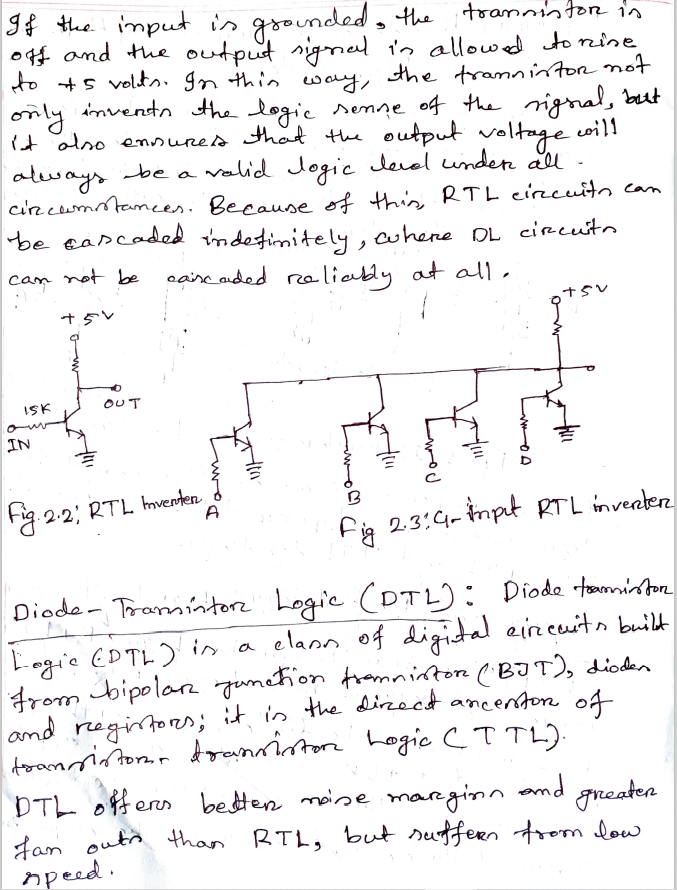 If the input is grounded, the transistor is
off and the output signal is allowed to rise
to +5 volts. In this way, the transistor not
only invents the logic sense of the signal, but
it also ensures that the output voltage will
always be a valid logic level under all
circumstances. Because of this, RTL circuits can
be cascaded indefinitely, where DL circuits
can not be cascaded reliably at all.
+5V
+5V
15K
OUT
IN
A
B
C
D
Fig. 2.2; RTL Inverter
Fig 2.3: 4-input RTL inverter
Diode-Transistor Logic (DTL): Diode transistor
Logic (DTL) is a class of digital circuits built
from bipolar junction transistor (BJT), diodes
and registors; it is the direct ancestor of
transistor transistor Logic (TTL).
DTL offers better noise margins and greater
fan outs than RTL, but suffers from low
speed.